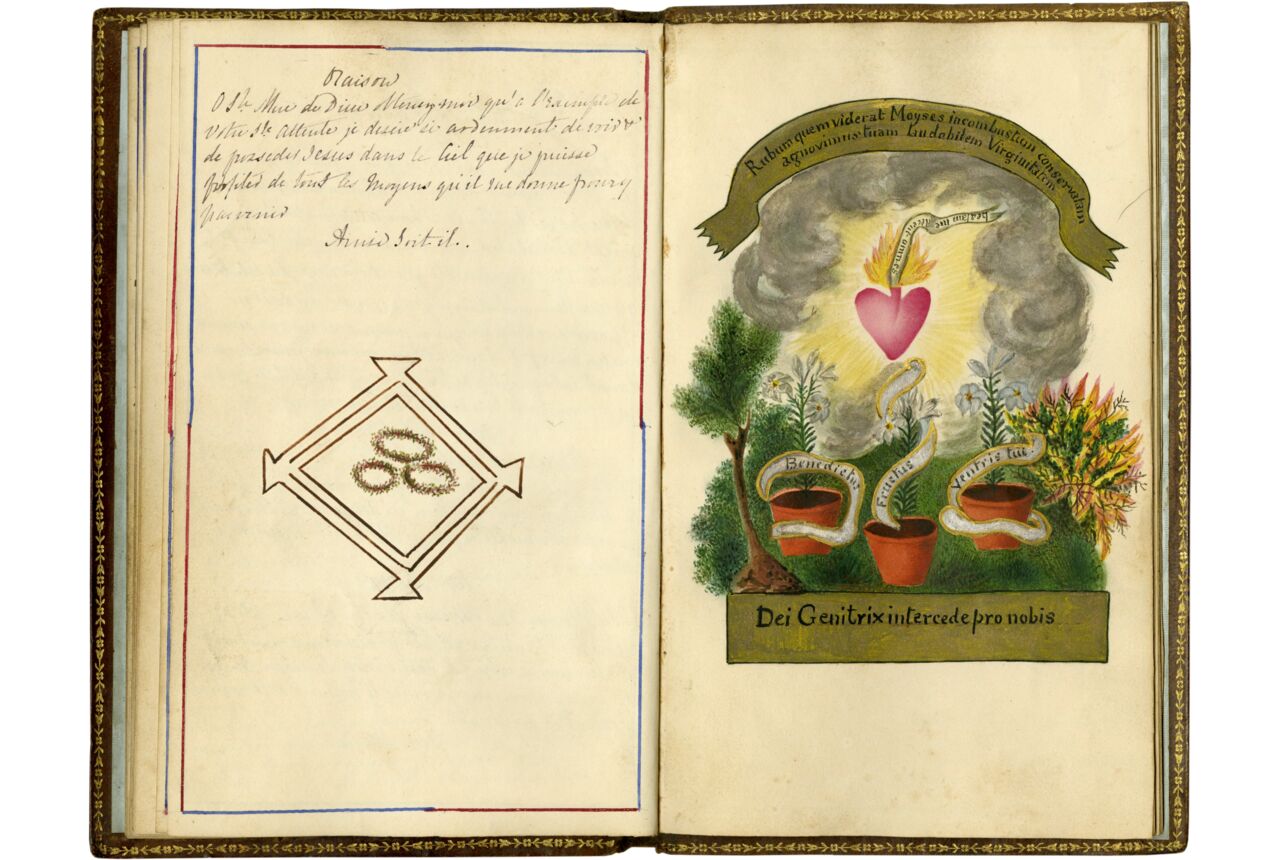 Oraison
O Ste Mere de Dieu obtenez moi qu'a l'exemple de
votre Ste attente je desire si ardemment de voir &
de posseder Jesus dans le Ciel que je puisse
profiter de tout les moyens qu'il me donne pour y
parvenir
Ainsi soit-il..
Rubum quem viderat Moyses incombustion conservatam
agnovimus tuam laudabilem Virginitatem
beatam me
dicent omnes
Benedictus
fructus
Ventris tui
Dei Genitrix intercede pro nobis